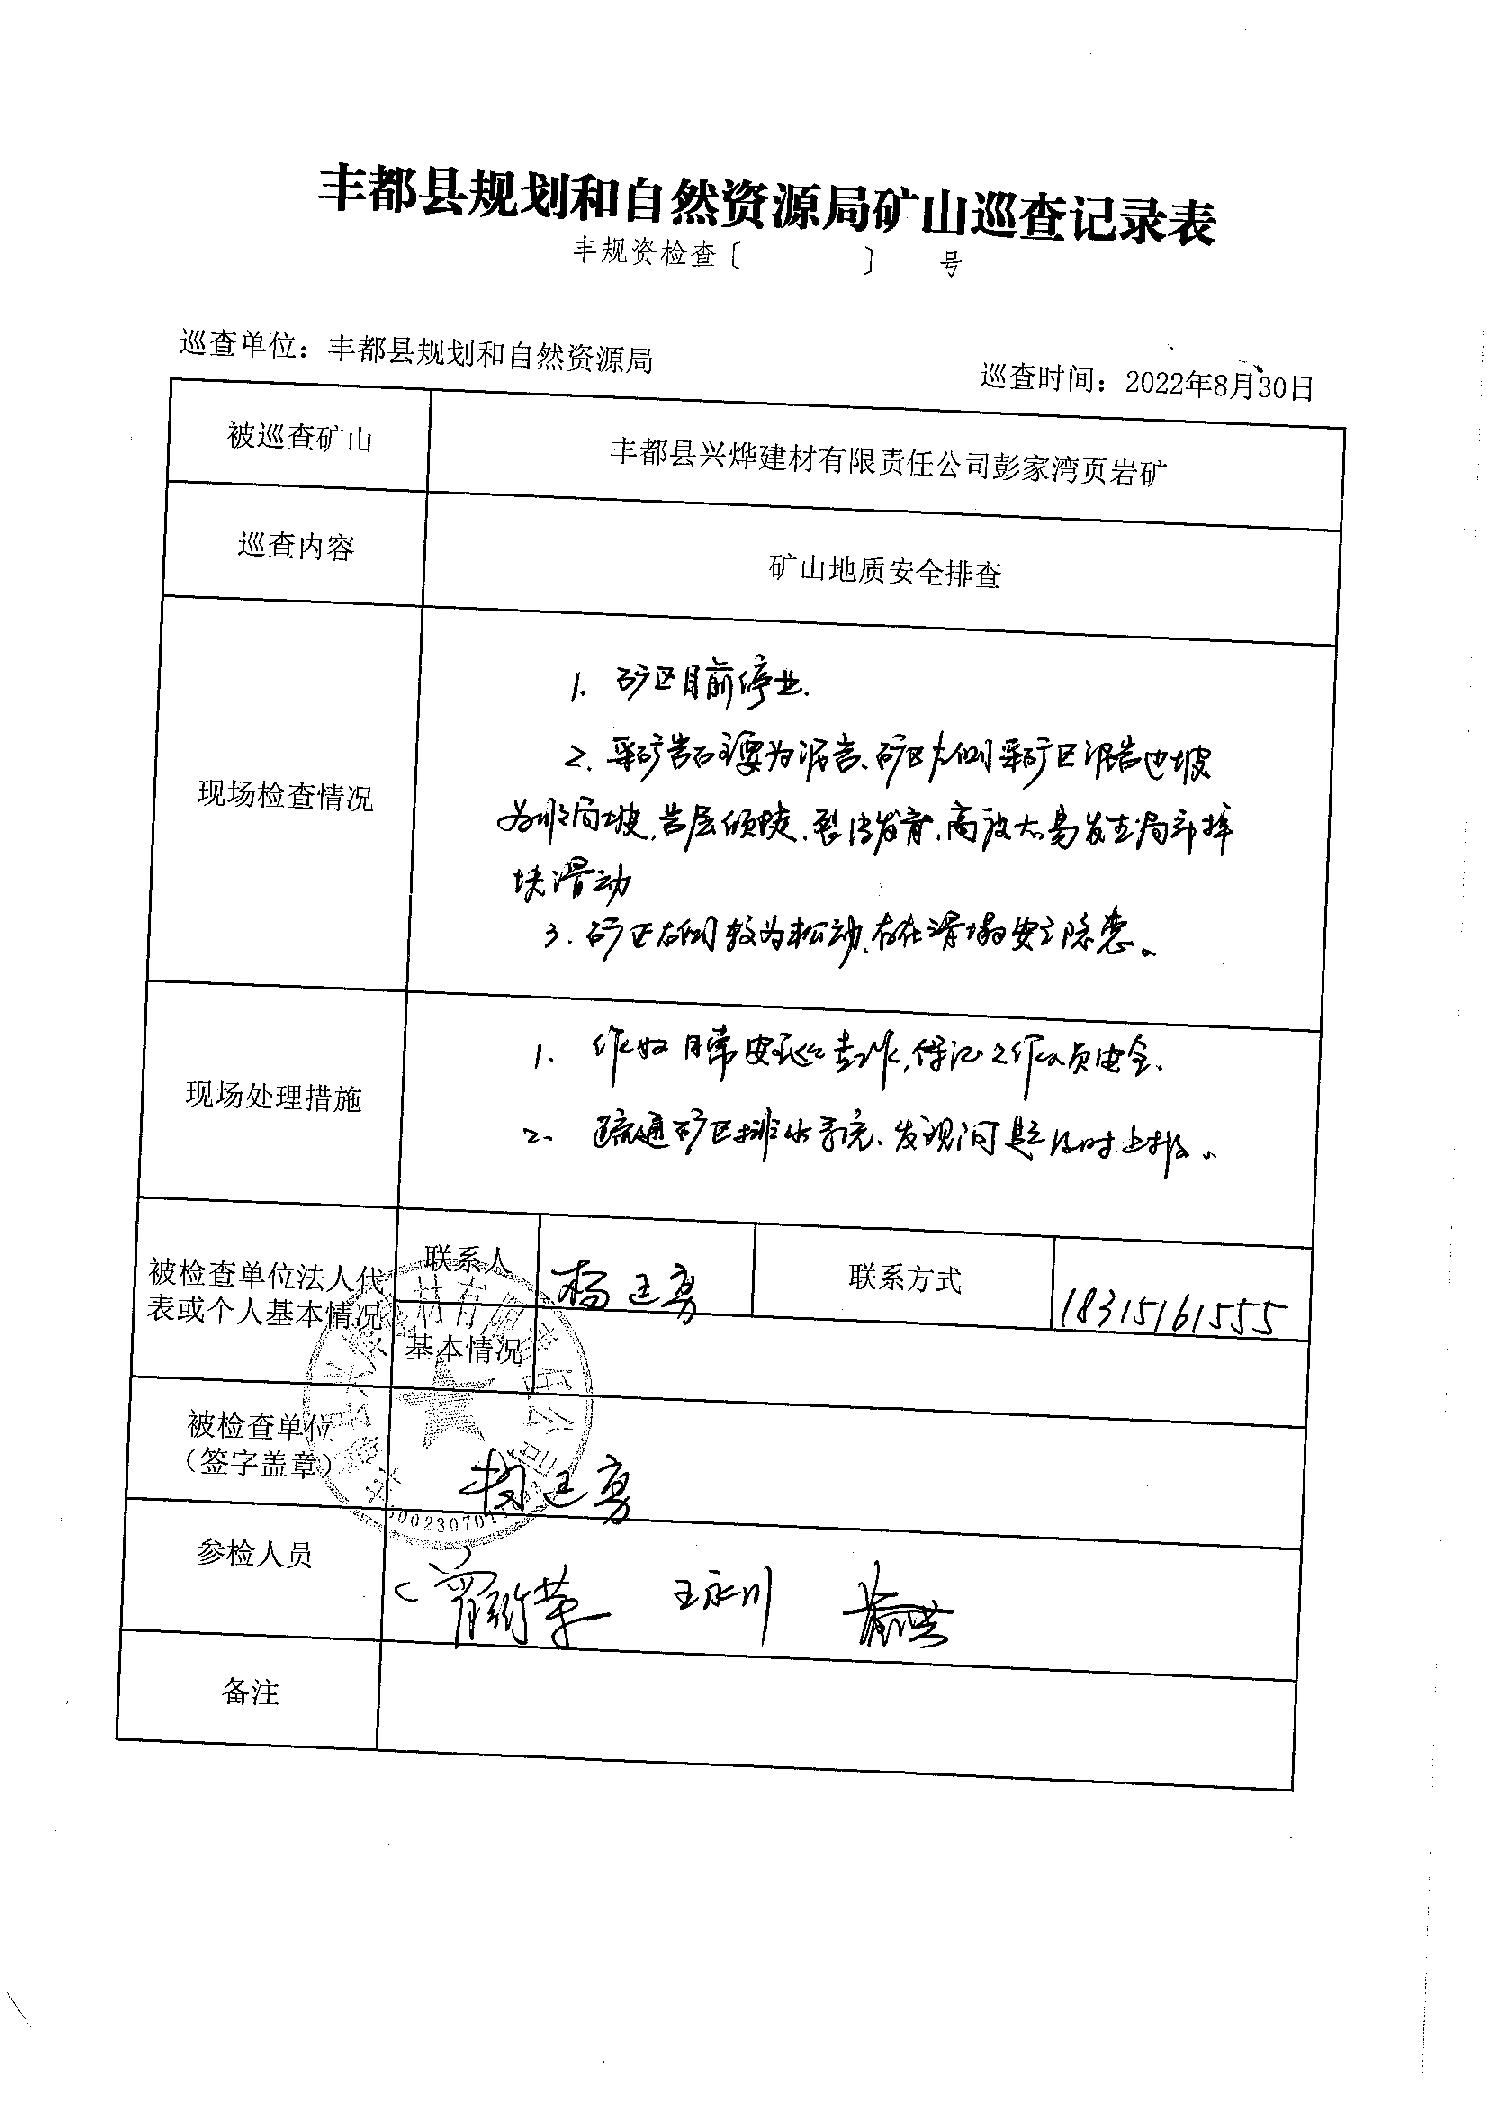 丰都县规划和自然资源局矿山巡查记录表
丰规资检查〔 〕 号
巡查单位：丰都县规划和自然资源局
巡查时间：2022年8月30日
被巡查矿山
丰都县兴烨建材有限责任公司彭家湾页岩矿
巡查内容
矿山地质安全排查
现场检查情况
1. 矿区目前停业.
2. 采矿岩石主要为泥岩、矿区 侧采矿区泥岩边坡
为顺向坡,岩层倾陡,裂隙发育, 易发生局部掉
块滑动
3. 矿区右侧较为松动,存在滑塌安全隐患。
现场处理措施
1. 作好日常安全 ,保证工作人员安全.
2. 疏通矿区排水系统、发现问题及时上报。
被检查单位法人代
表或个人基本情况
联系人
杨 勇
联系方式
18315161555
基本情况
被检查单位
（签字盖章）
杨 勇
参检人员
王永川
备注